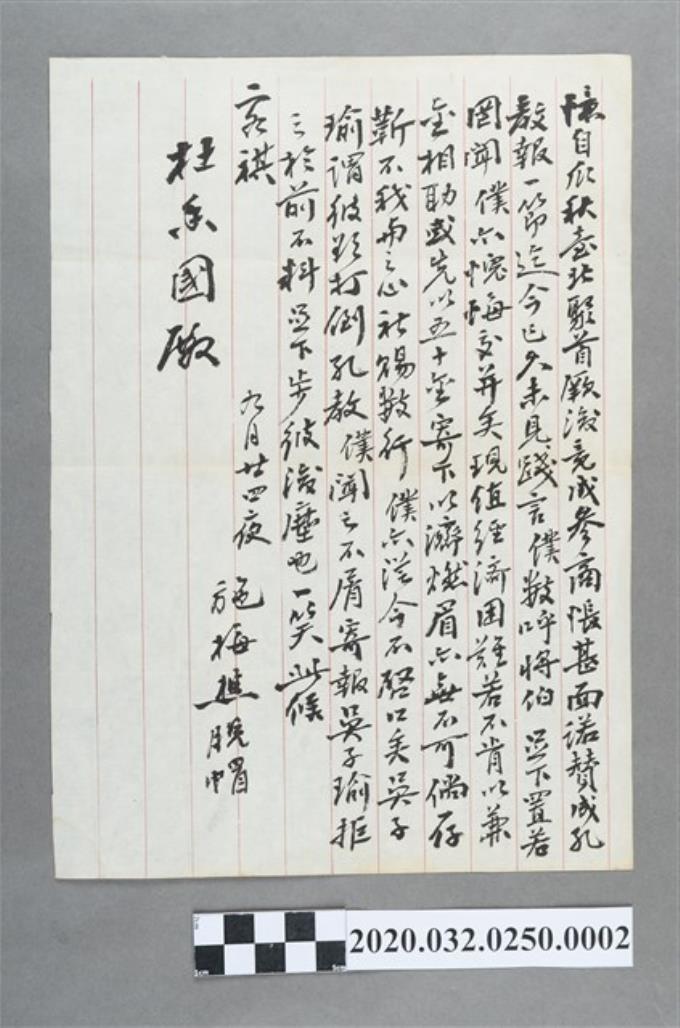 自庚秋臺北聚首厥後竟成參商悵甚面諾贊成孔
教報一節迄今已久未見踐言僕數呼將伯 足下置若
罔聞僕亦愧悔交并矣現值經濟困難若不肯以兼
金相助或先以五十金寄下以濟燃眉亦無不可倘存
靳不我與之心祈賜數行 僕亦從今不啓口矣吳子
瑜謂彼欲打倒孔教 僕聞之不屑寄報吳子瑜拒
之於前不料足下步彼後塵也一笑此候
文祺
九月廿四夜 施梅樵脫帽
杜香國 啟
2020.032.0250.0002